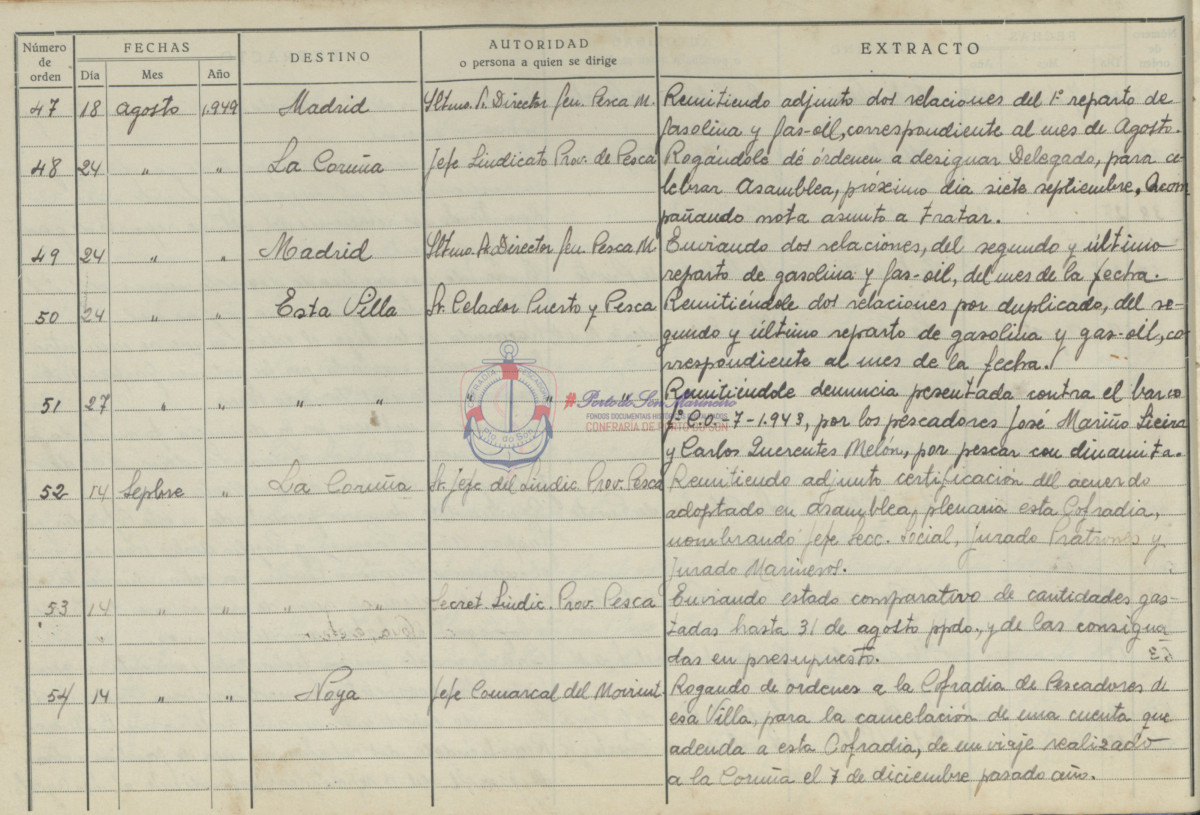 Número de orden FECHAS DESTINO AUTORIDAD EXTRACTO
Día Mes Año o persona a quien se dirige
47 18 agosto 1.949 Madrid Iltmo. Sr. Director Gen. Pesca M. Remitiendo adjunto dos relaciones del 1º reparto de
gasolina y gas-oil, correspondiente al mes de Agosto.
48 24 " " La Coruña Jefe Sindicato Prov. de Pesca Rogándole dé órdenen a designar Delegado, para ce-
lebrar Asamblea, próximo dia siete septiembre, Acom
pañando nota asunto a tratar.
49 24 " " Madrid Iltmo. Sr. Director Gen. Pesca M Enviando dos relaciones, del segundo y último
reparto de gasolina y gas-oil, del mes de la fecha.
50 24 " " Esta Villa Sr. Celador Puerto y Pesca Remitiéndole dos relaciones por duplicado, del se-
gundo y último reparto de gasolina y gas-oil, co
rrespondiente al mes de la fecha.
51 27 " " " " " " " Remitiéndole denuncia pesentada contra el barco
C.O.-7-1.943, por los pescadores José Mariño Lieira
y Carlos Querentes Melón, por pescar con dinamita.
COFRADÍA PESCADORES
Pto. do Son
# Porto do Son Marineiro
FONDOS DOCUMENTAIS
CONFRARÍA DE PORTO DO SON
52 14 Sepbre " La Coruña Sr. Jefe del Sindic. Prov. Pesca Remitiendo adjunto certificación del acuerdo
adoptado en asamblea, plenaria esta Cofradia,
nombrando Jefe Secc. Social, Jurado Pratrones y
Jurado Marineros.
53 14 " " " " Secret. Sindic. Prov. Pesca Enviando estado comparativo de cantidades gas-
tadas hasta 31 de agosto ppdo., y de las consigna
das en presupuesto.
54 14 " " Noya Jefe Comarcal del Movimt. Rogando de ordenes a la Cofradia de Pescadores de
esa Villa, para la cancelación de una cuenta que
adeuda a esta Cofradia, de un viaje realizado
a la Coruña el 7 de diciembre pasado año.